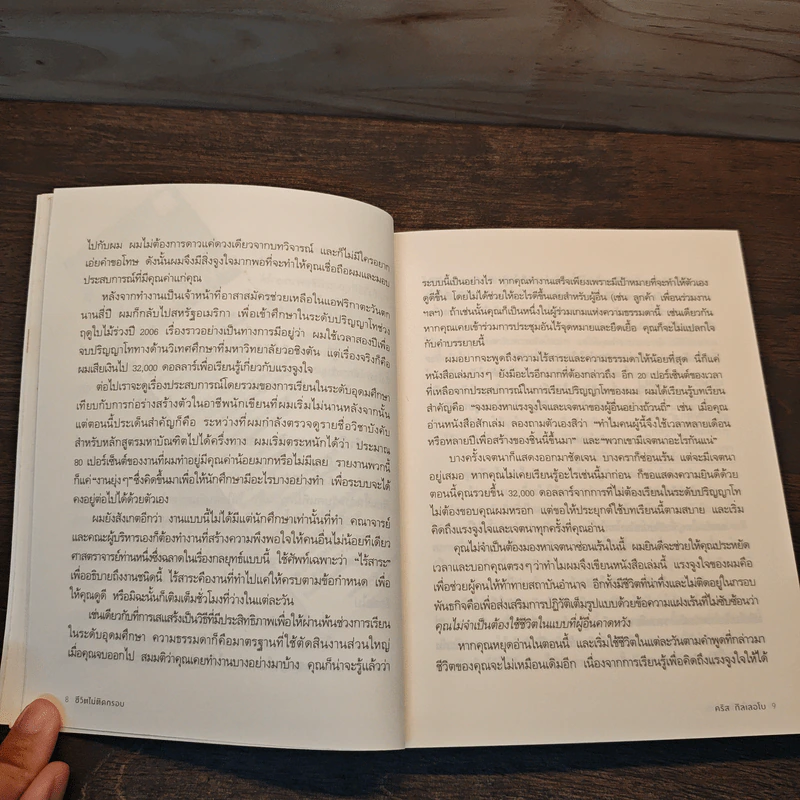 ไปกับผม ผมไม่ต้องการดาวแค่ดวงเดียวจากบทวิจารณ์ และก็ไม่มีใครอยาก
เอ่ยคำขอโทษ ดังนั้นผมจึงมีสิ่งจูงใจมากพอที่จะทำให้คุณเชื่อถือผมและมอบ
ประสบการณ์ที่มีคุณค่าแก่คุณ
หลังจากทำงานเป็นเจ้าหน้าที่อาสาสมัครช่วยเหลือในแอฟริกาตะวันตก
นานสี่ปี ผมก็กลับไปสหรัฐอเมริกา เพื่อเข้าศึกษาในระดับปริญญาโทช่วง
ฤดูใบไม้ร่วงปี 2006 เรื่องราวอย่างเป็นทางการมีอยู่ว่า ผมใช้เวลาสองปีเพื่อ
จบปริญญาโททางด้านวิเทศศึกษาที่มหาวิทยาลัยวอชิงตัน แต่เรื่องจริงก็คือ
ผมเสียเงินไป 32,000 ดอลลาร์เพื่อเรียนรู้เกี่ยวกับแรงจูงใจ
ต่อไปเราจะดูเรื่องประสบการณ์โดยรวมของการเรียนในระดับอุดมศึกษา
เทียบกับการก่อร่างสร้างตัวในอาชีพนักเขียนที่ผมเริ่มไม่นานหลังจากนั้น
แต่ตอนนี้ประเด็นสำคัญก็คือ ระหว่างที่ผมกำลังตรวจดูรายชื่อวิชาบังคับ
สำหรับหลักสูตรมหาบัณฑิตไปได้ครึ่งทาง ผมเริ่มตระหนักได้ว่า ประมาณ
80 เปอร์เซ็นต์ของงานที่ผมทำอยู่มีคุณค่าน้อยมากหรือไม่มีเลย รายงานพวกนี้
ก็แค่“งานยุ่งๆ”ซึ่งคิดขึ้นมาเพื่อให้นักศึกษามีอะไรบางอย่างทำ เพื่อระบบจะได้
คงอยู่ต่อไปได้ด้วยตัวเอง
ผมยังสังเกตอีกว่า งานแบบนี้ไม่ได้มีแต่นักศึกษาเท่านั้นที่ทำ คณาจารย์
และคณะผู้บริหารเองก็ต้องทำงานที่สร้างความพึงพอใจให้คนอื่นไม่น้อยทีเดียว
ศาสตราจารย์ท่านหนึ่งซึ่งฉลาดในเรื่องกลยุทธ์แบบนี้ ใช้ศัพท์เฉพาะว่า “ไร้สาระ”
เพื่ออธิบายถึงงานชนิดนี้ ไร้สาระคืองานที่ทำไปแค่ให้ครบตามข้อกำหนด เพื่อ
ให้คุณดูดี หรือมิฉะนั้นก็เติมเต็มชั่วโมงที่ว่างในแต่ละวัน
เช่นเดียวกับที่การเสแสร้งเป็นวิธีที่มีประสิทธิภาพเพื่อให้ผ่านพ้นช่วงการเรียน
ในระดับอุดมศึกษา ความธรรมดาก็คือมาตรฐานที่ใช้ตัดสินงานส่วนใหญ่
เมื่อคุณจบออกไป สมมติว่าคุณเคยทำงานบางอย่างมาบ้าง คุณก็น่าจะรู้แล้วว่า
8 ชีวิตไม่ติดกรอบ
ระบบนี้เป็นอย่างไร หากคุณทำงานเสร็จเพียงเพราะมีเป้าหมายที่จะทำให้ตัวเอง
ดูดีขึ้น โดยไม่ได้ช่วยให้อะไรดีขึ้นเลยสำหรับผู้อื่น (เช่น ลูกค้า เพื่อนร่วมงาน
ฯลฯ) ถ้าเช่นนั้นคุณก็เป็นหนึ่งในผู้ร่วมเกมแห่งความธรรมดานี้ เช่นเดียวกัน
หากคุณเคยเข้าร่วมการประชุมอันไร้จุดหมายและยืดเยื้อ คุณก็จะไม่แปลกใจ
กับคำบรรยายนี้
ผมอยากจะพูดถึงความไร้สาระและความธรรมดาให้น้อยที่สุด นี่ก็แค่
หนังสือเล่มบางๆ ยังมีอะไรอีกมากที่ต้องกล่าวถึง อีก 20 เปอร์เซ็นต์ของเวลา
ที่เหลือจากประสบการณ์ในการเรียนปริญญาโทของผม ผมได้เรียนรู้บทเรียน
สำคัญคือ “จงมองหาแรงจูงใจและเจตนาของผู้อื่นอย่างถ้วนถี่” เช่น เมื่อคุณ
อ่านหนังสือสักเล่ม ลองถามตัวเองสิว่า “ทำไมคนผู้นี้จึงใช้เวลาหลายเดือน
หรือหลายปีเพื่อสร้างของชิ้นนี้ขึ้นมา” และ“พวกเขามีเจตนาอะไรกันแน่”
บางครั้งเจตนาก็แสดงออกมาชัดเจน บางคราก็ซ่อนเร้น แต่จะมีเจตนา
อยู่เสมอ หากคุณไม่เคยเรียนรู้อะไรเช่นนี้มาก่อน ก็ขอแสดงความยินดีด้วย
ตอนนี้คุณรวยขึ้น 32,000 ดอลลาร์จากการที่ไม่ต้องเรียนในระดับปริญญาโท
ไม่ต้องขอบคุณผมหรอก แต่ขอให้ประยุกต์ใช้บทเรียนนี้ตามสบาย และเริ่ม
คิดถึงแรงจูงใจและเจตนาทุกครั้งที่คุณอ่าน
คุณไม่จำเป็นต้องมองหาเจตนาซ่อนเร้นในนี้ ผมยินดีจะช่วยให้คุณประหยัด
เวลาและบอกคุณตรงๆว่าทำไมผมจึงเขียนหนังสือเล่มนี้ แรงจูงใจของผมคือ
เพื่อช่วยผู้คนให้ท้าทายสถาบันอำนาจ อีกทั้งมีชีวิตที่น่าทึ่งและไม่ติดอยู่ในกรอบ
พันธกิจคือเพื่อส่งเสริมการปฏิวัติเต็มรูปแบบด้วยข้อความแฝงเร้นที่ไม่ซับซ้อนว่า
คุณไม่จำเป็นต้องใช้ชีวิตในแบบที่ผู้อื่นคาดหวัง
หากคุณหยุดอ่านในตอนนี้ และเริ่มใช้ชีวิตในแต่ละวันตามคำพูดที่กล่าวมา
ชีวิตของคุณจะไม่เหมือนเดิมอีก เนื่องจากการเรียนรู้เพื่อคิดถึงแรงจูงใจให้ได้
คริส กิลเลอโบ 9